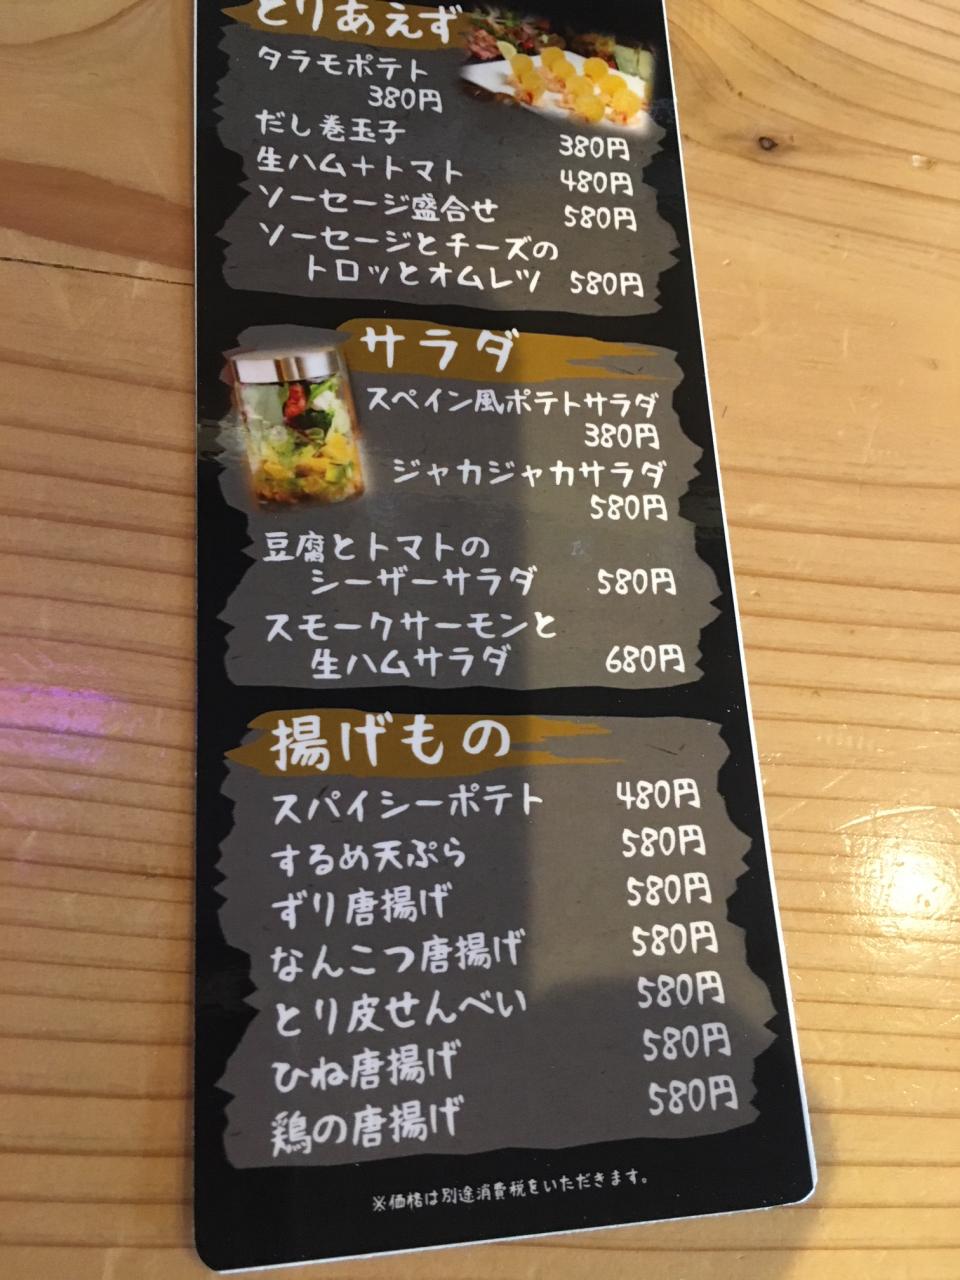 とりあえず
タラモポテト
380円
だし巻玉子 380円
生ハム+トマト 480円
ソーセージ盛合せ 580円
ソーセージとチーズの
トロッとオムレツ 580円
サラダ
スペイン風ポテトサラダ
380円
ジャカジャカサラダ
580円
豆腐とトマトの
シーザーサラダ 580円
スモークサーモンと
生ハムサラダ 680円
揚げもの
スパイシーポテト 480円
するめ天ぷら 580円
ずり唐揚げ 580円
なんこつ唐揚げ 580円
とり皮せんべい 580円
ひね唐揚げ 580円
鶏の唐揚げ 580円
※価格は別途消費税をいただきます。